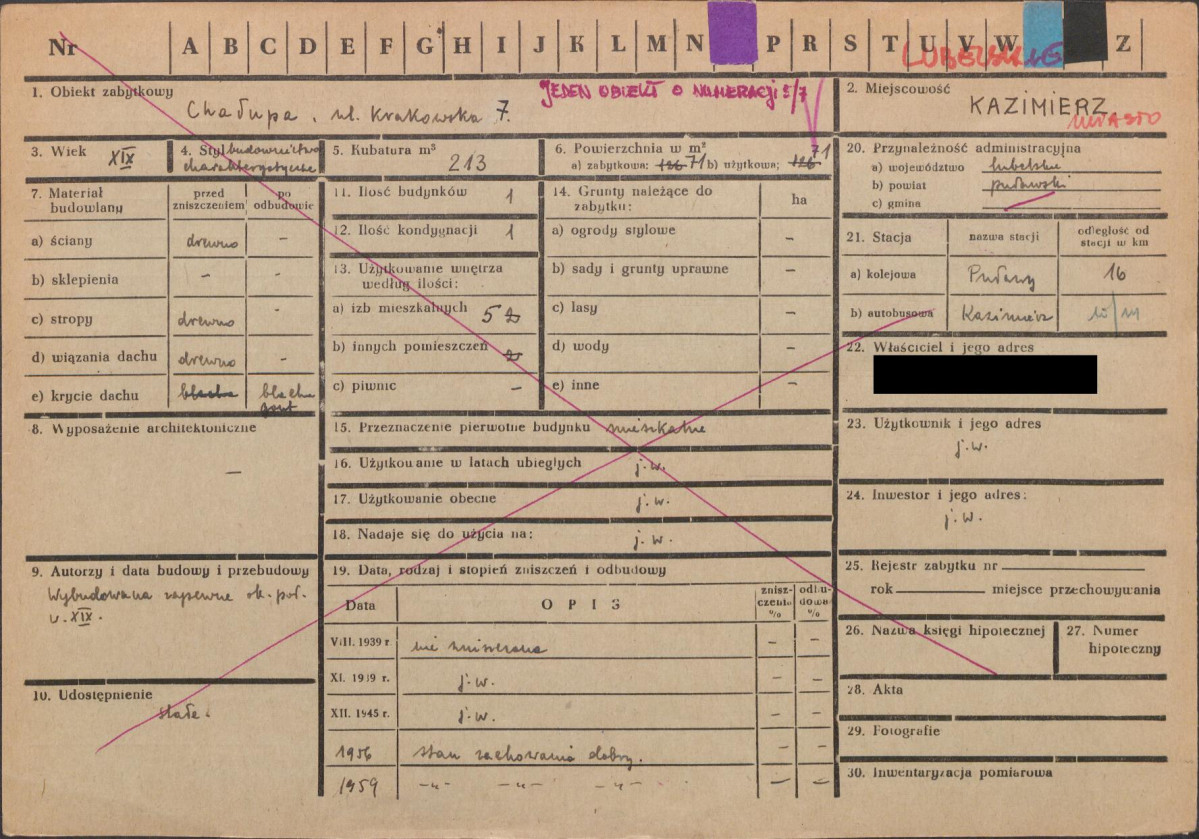 Nr A B C D E F G H I J K L M N P R S T U V W Z
LUBELSKIE
1. Obiekt zabytkowy
JEDEN OBIEKT O NUMERACJI 5/7
Chałupa, ul. Krakowska 7.
2. Miejscowość
KAZIMIERZ
MIASTO
3. Wiek XIX
4. Styl budownictwo
charakterystyczne
5. Kubatura m³
213
6. Powierzchnia w m²
a) zabytkowa: 126 71 b) użytkowa; 126 71
20. Przynależność administracyjna
a) województwo lubelskie
b) powiat puławski
c) gmina
7. Materiał budowlany
przed zniszczeniem
po odbudowie
a) ściany drewno -
b) sklepienia - -
c) stropy drewno -
d) wiązania dachu drewno -
e) krycie dachu blacha blacha
gont
11. Ilość budynków 1
12. Ilość kondygnacji 1
13. Użytkowanie wnętrza
według ilości:
a) izb mieszkalnych 5 2
b) innych pomieszczeń 2
c) piwnic -
14. Grunty należące do
zabytku:
ha
a) ogrody stylowe -
b) sady i grunty uprawne -
c) lasy -
d) wody -
e) inne -
21. Stacja
nazwa stacji
odległość od
stacji w km
a) kolejowa Puławy 16
b) autobusowa Kazimierz w/m
22. Właściciel i jego adres
8. Wyposażenie architektoniczne
-
15. Przeznaczenie pierwotne budynku mieszkalne
16. Użytkowanie w latach ubiegłych j.w.
17. Użytkowanie obecne j.w.
18. Nadaje się do użycia na: j.w.
23. Użytkownik i jego adres
j.w.
24. Inwestor i jego adres:
j.w.
9. Autorzy i data budowy i przebudowy
Wybudowana zapewne ok. poł.
w. XIX.
10. Udostępnienie
stałe.
19. Data, rodzaj i stopień zniszczeń i odbudowy
Data
OPIS
znisz-
czenia
%
odbu-
dowa
%
VIII. 1939 r. nie zniszczona - -
XI. 1939 r. j.w. - -
XII. 1945 r. j.w. - -
1956 stan zachowania dobry. - -
1959 -„- -„- -„- - -
25. Rejestr zabytku nr
rok miejsce przechowywania
26. Nazwa księgi hipotecznej
27. Numer
hipoteczny
28. Akta
29. Fotografie
30. Inwentaryzacja pomiarowa